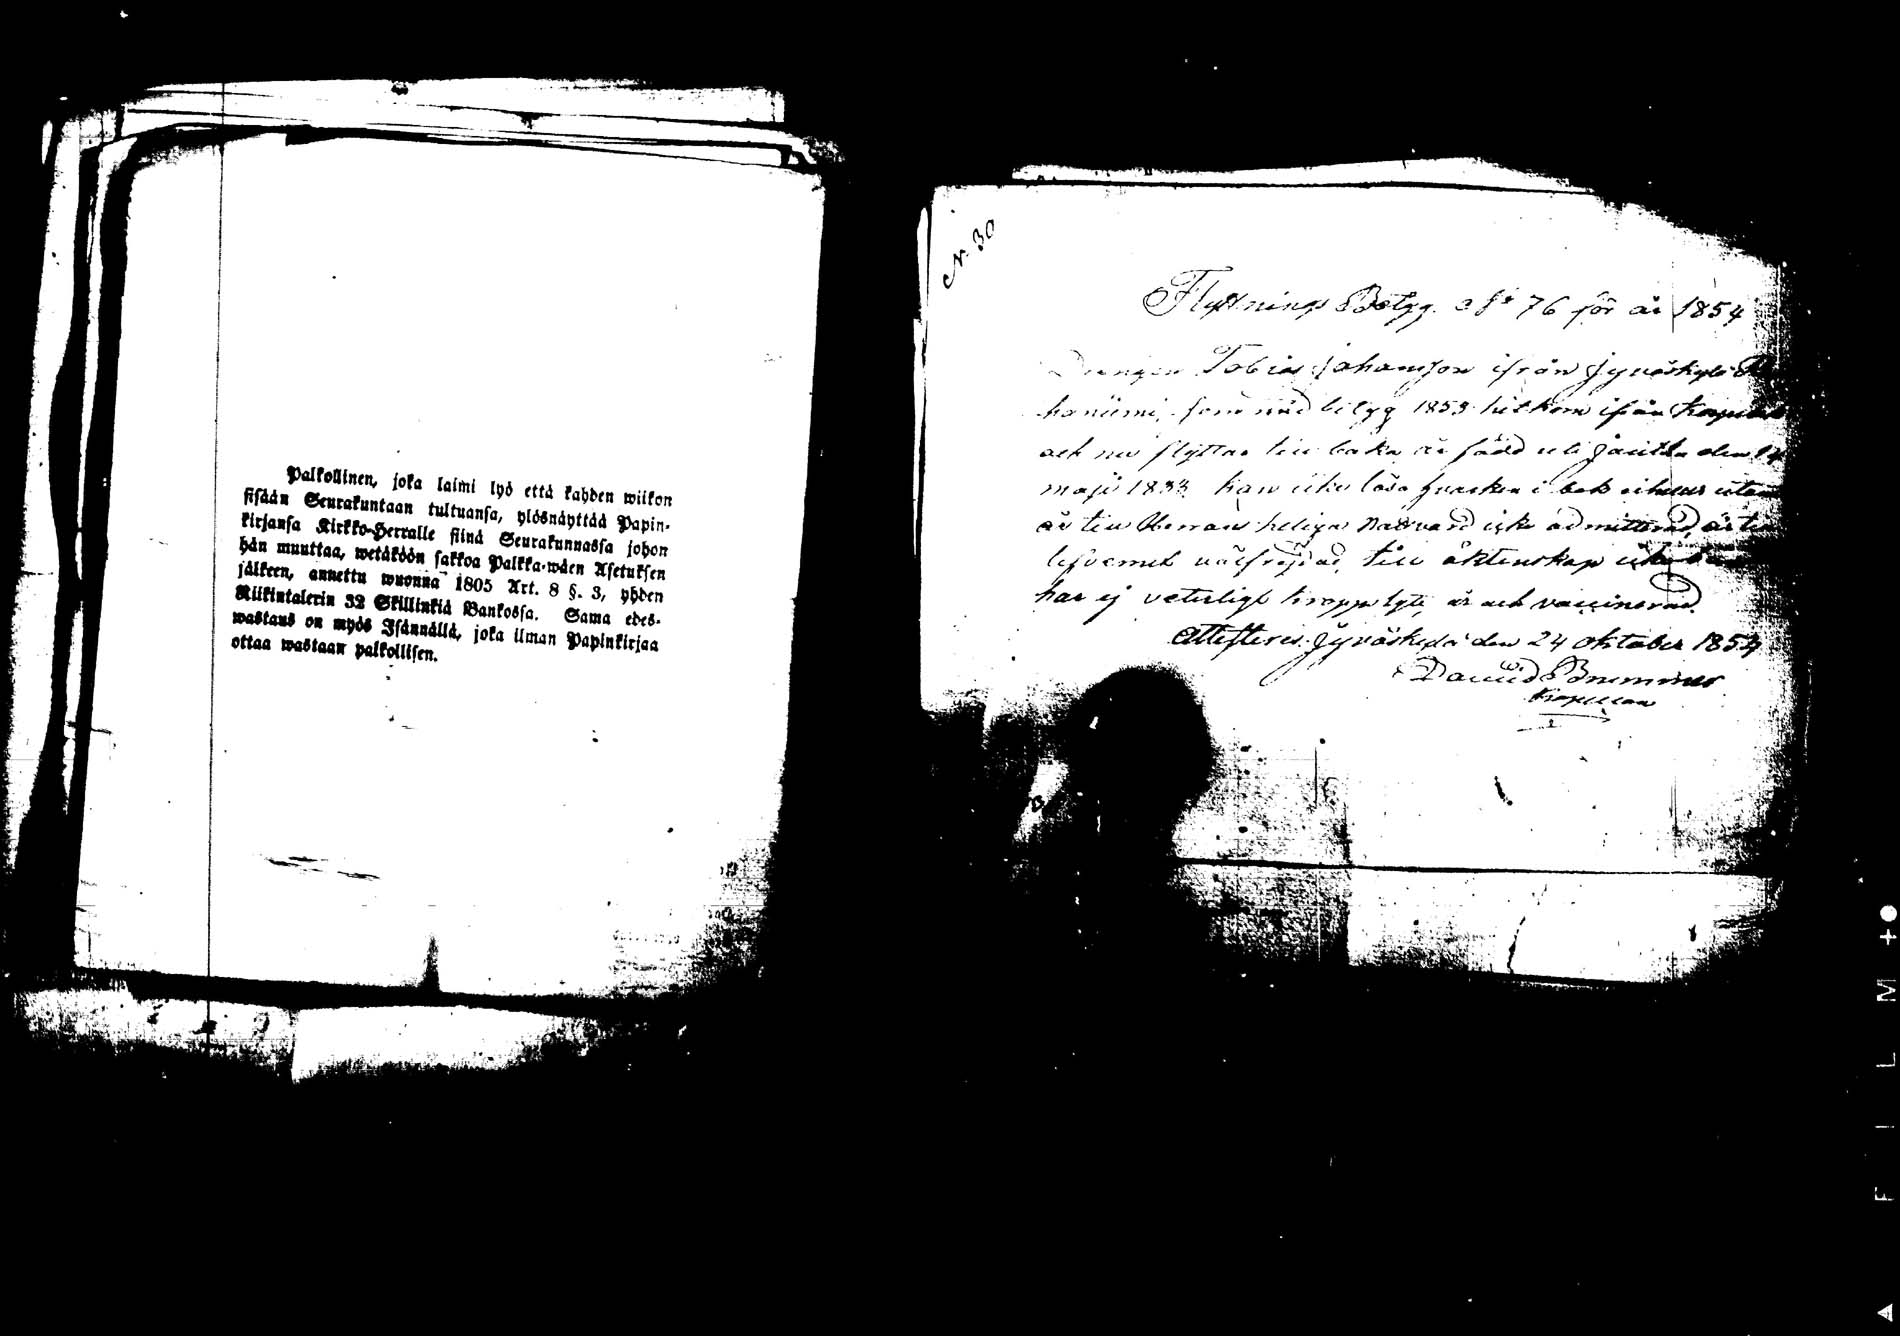 Palkollinen, joka laimi lyö että kahden wiikon
sisään Seurakuntaan tultuansa, ylösnäyttää Papin-
kirjansa Kirkko-Herralle siinä Seurakunnassa johon
hän muuttaa, wetäköön sakkoa Palkka-wäen Asetuksen
jälkeen, annettu wuonna 1805 Art. 8 §. 3, yhden
Riikintalerin 32 Skillinkiä Bankossa. Sama edes-
wastaus on myös Isännällä, joka ilman Papinkirjaa
ottaa wastaan palkollisen.
N: 30
Flyttnings Betyg. No 76 för år 1854
Drengen Tobias Johansson ifrån Jyväskylä
haniemi, som med betyg 1853 hitkom ifrån
och nu flyttar till baka är född uti den 14
maji 1833 kan icke läsa i bok utan
är till Herrans heliga Nattvard icke admitterad, är till
lefvernet välfrejdad, till äktenskap
har ej veterligt kroppslyte, är och vaccinerad.
Attesteres. Jyväskylä den 24 oktober 1854
David Brummer
Kapellan
FILM